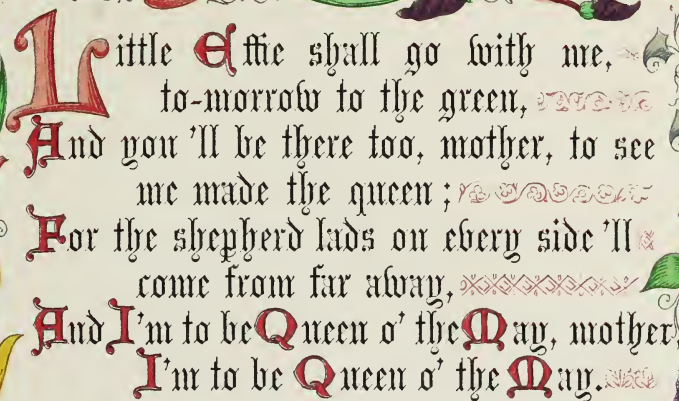 Little Effie shall go with me,
to-morrow to the green,
And you 'll be there too, mother, to see
me made the queen;
For the shepherd lads on every side 'll
come from far away,
And I'm to be Queen o' the May, mother,
I'm to be Queen o' the May.